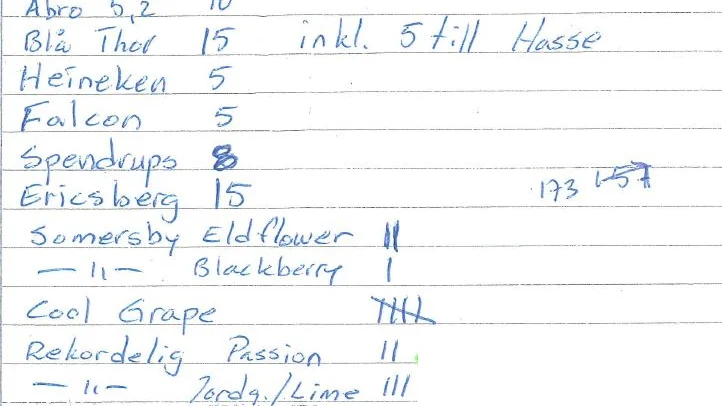 Åbro 5,2 10
Blå Thor 15 inkl. 5 till Hasse
Heineken 5
Falcon 5
Spendrups 8
Ericsberg 15 173 157
Somersby Eldflower II
— 11 — Blackberry I
Cool Grape IIII
Rekordelig Passion II
— 11 — Jordg./Lime III